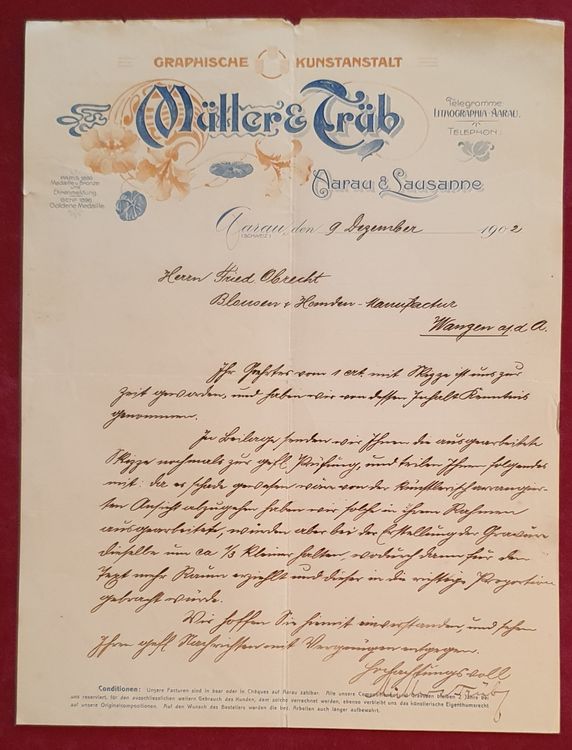 GRAPHISCHE KUNSTANSTALT
Müller & Trüb
Telegramme
LITHOGRAPHIA-AARAU.
TELEPHON.
Aarau & Lausanne
PARIS 1889
Medaille v. Bronze
Ehrenmeldung
GENF 1896
Goldene Medaille.
Aarau, den 9 Dezember 1902
(SCHWEIZ)
Herrn Fried Obrecht
Blousen & Hemden-Manufactur
Wangen a/d A.
Ihr Geehrtes vom 1 crt. mit Skizze ist uns zur
Zeit geworden, und haben wir von dessen Inhalt Kenntnis
genommen.
In Beilage senden wir Ihnen die ausgearbeitete
Skizze nochmals zur gefl. Prüfung, und teilen Ihnen folgendes
mit: da es schade gewesen wäre von der künstlerisch arrangier-
ten Ansicht abzugehen haben wir solche in ihrem Rahmen
ausgearbeitet, würden aber bei der Erstellung der Gravure
dieselbe um ca 1/3 kleiner halten, wodurch dann für den
Text mehr Raum erzielt und dieser in die richtige Proportion
gebracht würde.
Wir hoffen Sie hiemit einverstanden, und sehen
Ihren gefl. Nachrichten mit Vergnügen entgegen.
Hochachtungsvoll
Conditionen: Unsere Facturen sind in baar oder in Chèques auf Aarau zahlbar. Alle unsere Compositionen und Gravuren bleiben 2 Jahre bei
uns reservirt, für den ausschliesslichen weitern Gebrauch des Kunden, dem solche verrechnet werden, ebenso verbleibt uns das künstlerische Eigenthumsrecht
auf unsere Originalcompositionen. Auf den Wunsch des Bestellers werden die bez. Arbeiten auch länger aufbewahrt.